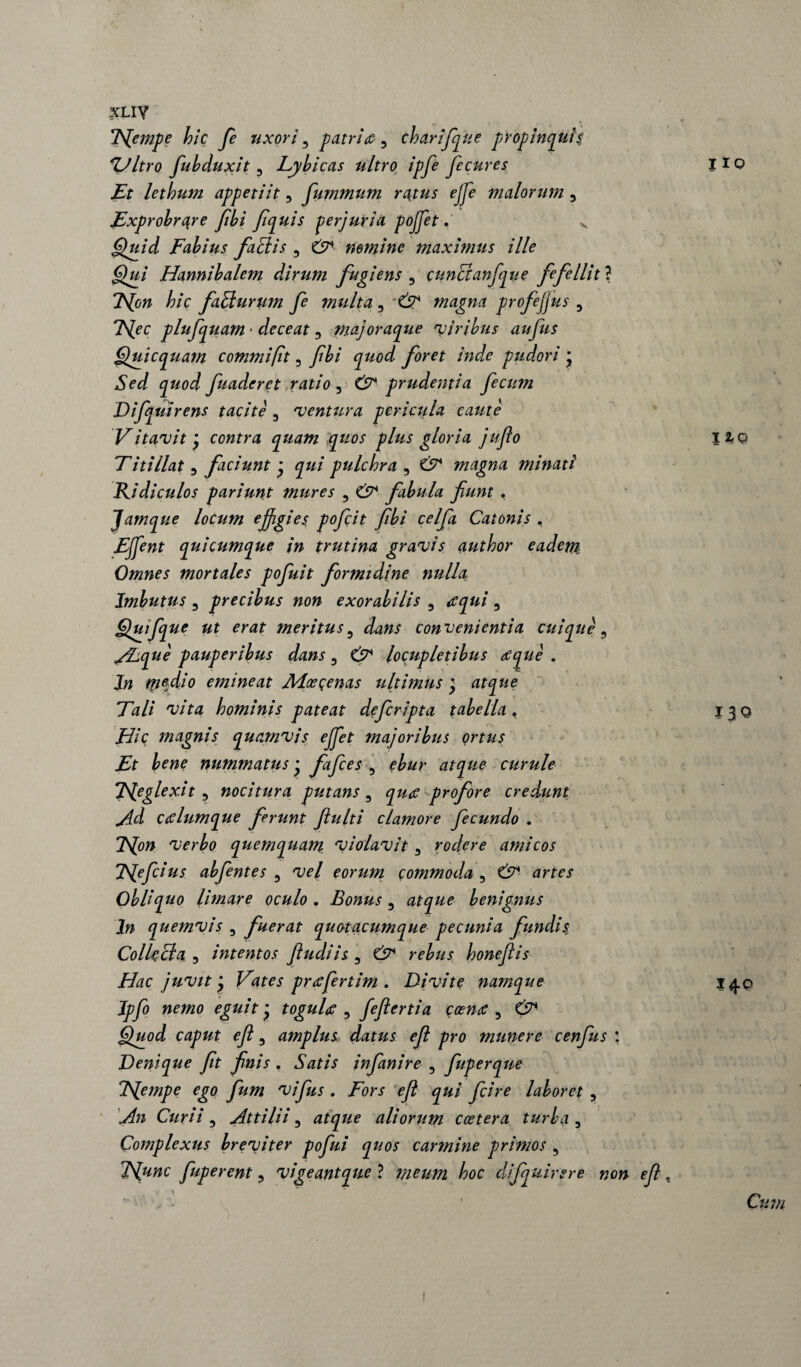 XLIV
Nempe hic ſe uxori, patriæ, chariſque propinquis
Ultro ſubduxit, Lybicas ultro ipſe ſecures 110
Et lethum appetiit, ſummum ratus eſſe malorum,
Exprobrare ſibi ſiquis perjuria poſſet.
Quid Fabius factis, & nomine maximus ille
Qui Hannibalem dirum fugiens, cunctanſque fefellit?
Non hic facturum ſe multa, & magna profeſſus,
Nec pluſquam deceat, majoraque viribus auſus
Quicquam commiſit, ſibi quod foret inde pudori;
Sed quod ſuaderet ratio, & prudentia ſecum
Diſquirens tacitè, ventura pericula cautè
Vitavit; contra quam quos plus gloria juſto 120
Titillat, faciunt; qui pulchra, & magna minati
Ridiculos pariunt mures, & fabula fiunt.
Jamque locum effigies poſcit ſibi celſa Catonis.
Eſſent quicumque in trutina gravis author eadem
Omnes mortales poſuit formidine nulla
Imbutus, precibus non exorabilis, æqui,
Quiſque ut erat meritus, dans convenientia cuique,
Æquè pauperibus dans, & locupletibus æquè.
In medio emineat Mœcenas ultimus; atque
Tali vita hominis pateat deſcripta tabella. 130
Hic magnis quamvis eſſet majoribus ortus
Et bene nummatus; faſces, ebur atque curule
Neglexit, nocitura putans, quæ profore credunt
Ad cælumque ferunt ſtulti clamore ſecundo.
Non verbo quemquam violavit, rodere amicos
Neſcius abſentes, vel eorum commoda, & artes
Obliquo limare oculo. Bonus, atque benignus
In quemvis, fuerat quotacumque pecunia fundis
Collecta, intentos ſtudiis, & rebus honeſtis
Hac juvit; Vates præſertim. Divite namque 140
Ipſo nemo eguit; togulæ, ſeſtertia cœnæ, &
Quod caput eſt, amplus datus eſt pro munere cenſus:
Denique ſit finis. Satis inſanire, ſuperque
Nempe ego ſum viſus. Fors eſt qui ſcire laboret,
An Curii, Attilii, atque aliorum cœtera turba,
Complexus breviter poſui quos carmine primos,
Nunc ſuperent, vigeantque? meum hoc diſquirere non eſt.
Cum